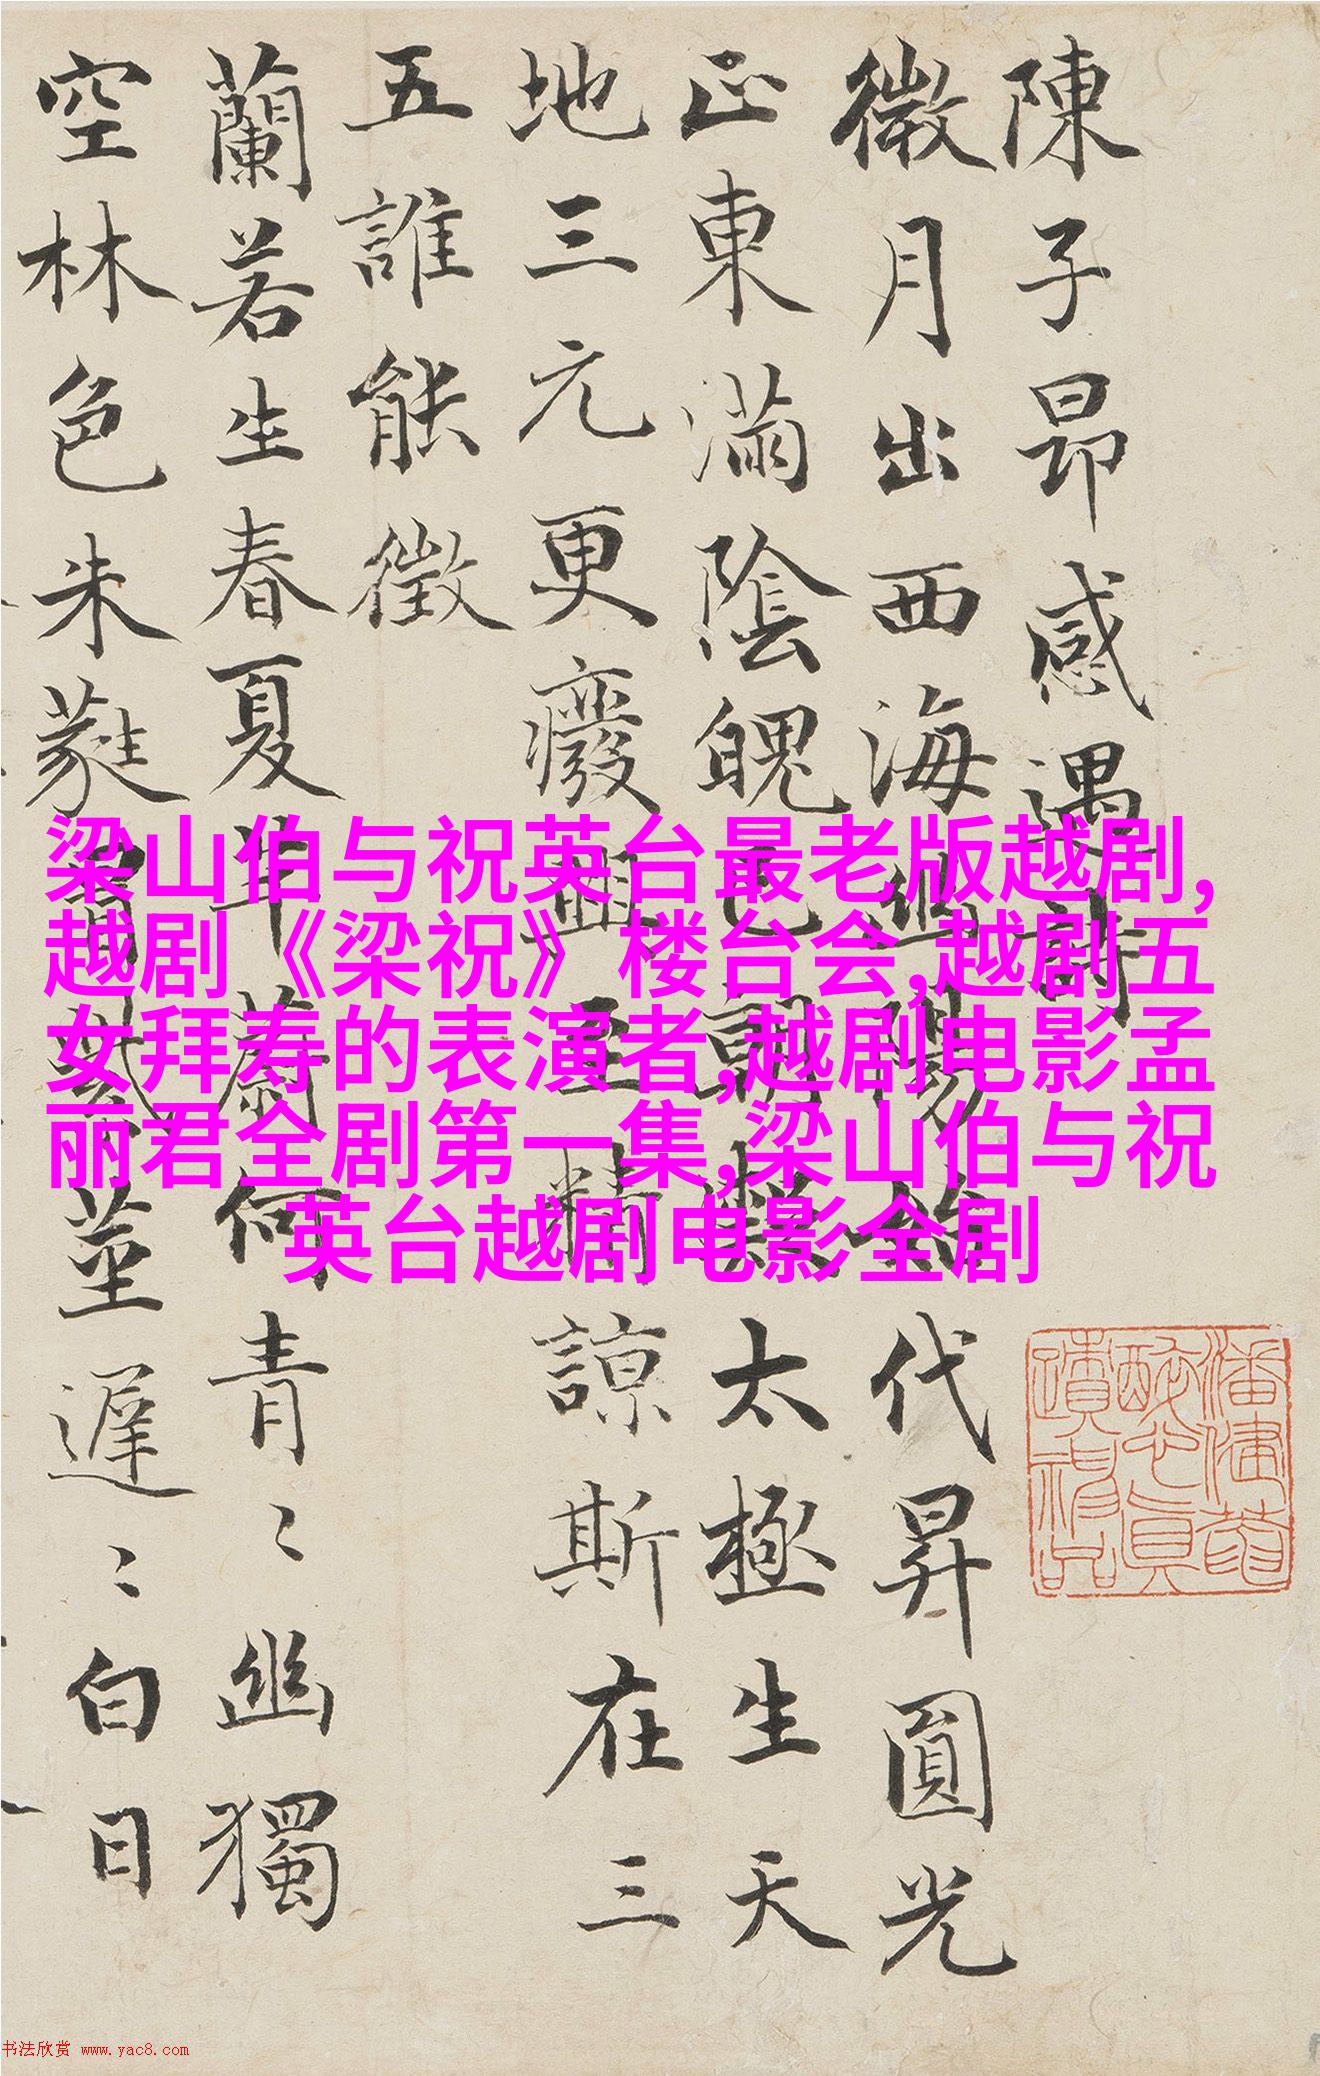 陳子昂感遇詩
微月出西海幽陽始代昇圓光
正東滿陰魄已朝凝太極生天
地三元更癈興至精諒斯在三
五誰能徵
蘭若生春夏芊蔚何青〻幽獨
空林色朱蕤冒紫莖遲〻白日
梁山伯与祝英台最老版越剧,
越剧《梁祝》楼台会,越剧五
女拜寿的表演者,越剧电影孟
丽君全剧第一集,梁山伯与祝
英台越剧电影全剧
书法欣赏 www.yac8.com